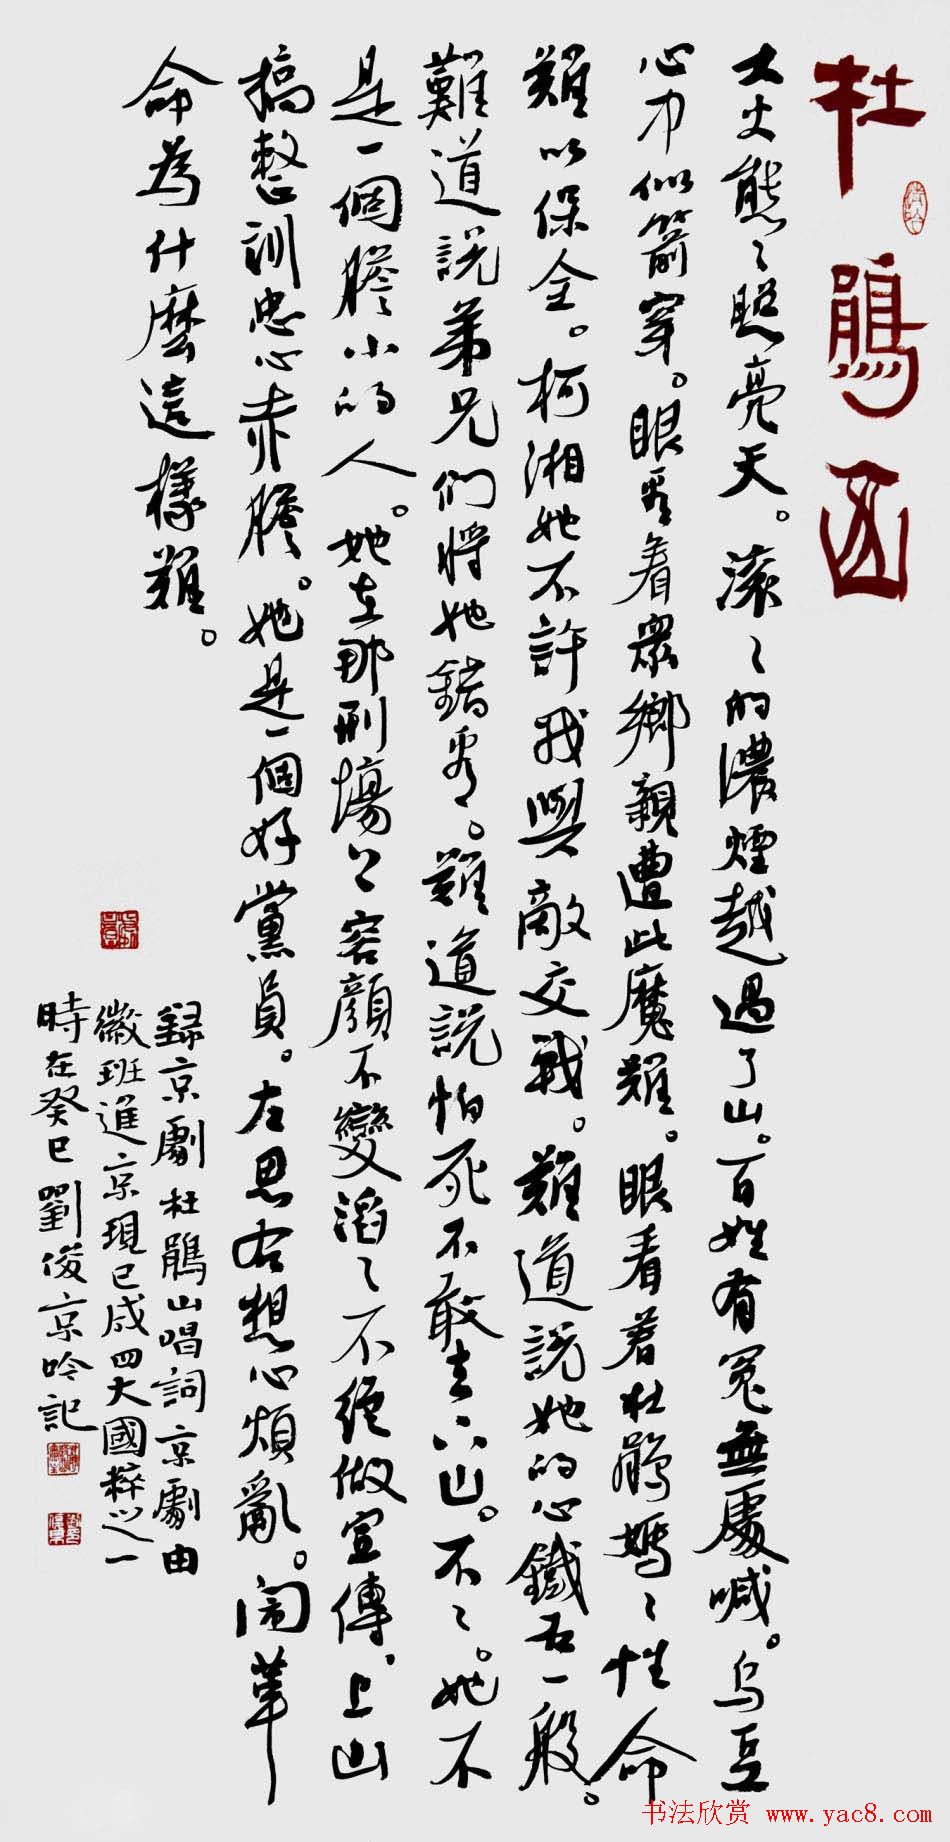 杜鵑山
大火熊〻照亮天。滾〻的濃煙越過了山。百姓有冤無處喊。烏豆
心中似箭穿。眼看着衆鄉親遭此魔難。眼看着杜鵑媽〻性命
難以保全。柯湘她不許我與敵交戰。難道說她的心鐵石一般。
難道說弟兄們將她錯看。難道說怕死不敢去下山。不〻。她不
是一個膽小的人。她在那刑場上容顏不變滔〻不絕做宣傳、上山
搞整訓忠心赤膽。她是一個好黨員。左思右想心煩亂。鬧革
命為什麼這樣難。
錄京劇杜鵑山唱詞京劇由
徽班進京現已成四大國粹之一
時在癸巳劉俊京吟記
书法欣赏 www.yac8.com